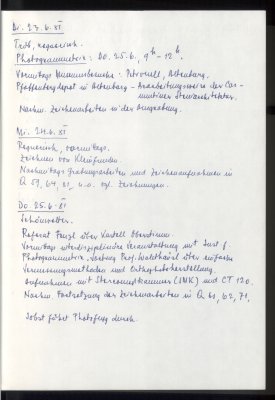 Di. 23.6.81
Trüb, regnerisch.
Photogrammetrie: Do. 25.6., 9h – 12h.
Vormittags Museumsbesuche: Petronell, Altenburg.
Pfaffenbergdepot in Altenburg – Bearbeitungsweise der Car-
nuntiner Steinarchitektur.
Nachm. Zeichenarbeiten in der Ausgrabung.
Mi. 24.6.81
Regnerisch, vormittags.
Zeichnen von Kleinfunden.
Nachmittags Grabungsarbeiten und Zeichenaufnahmen in
Q 59, 64, 81, u.a. vgl. Zeichnungen.
Do 25.6.81
Schönwetter.
Referat über Kastell
Vormittags interdisziplinäre Veranstaltung mit Inst. f.
Photogrammetrie. Vortrag Prof. Waldhäusl über einfache
Vermessungsmethoden und Orthophotoherstellung.
Aufnahmen mit Stereomeßkammer (JNK) und CT 120.
Nachm. Fortsetzung der Zeichenarbeiten in Q 61, 62, 71,
führt durch.